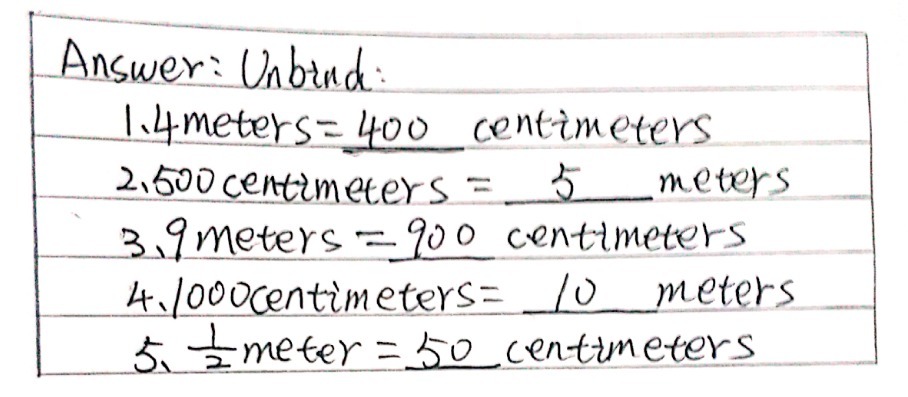 Answer: Unbind:
1.4meters=400 centimeters
2.500centimeters = 5 meters
3.9meters =900 centimeters
4.1000centimeters= 10 meters
5. 1/2 meter =50 centimeters